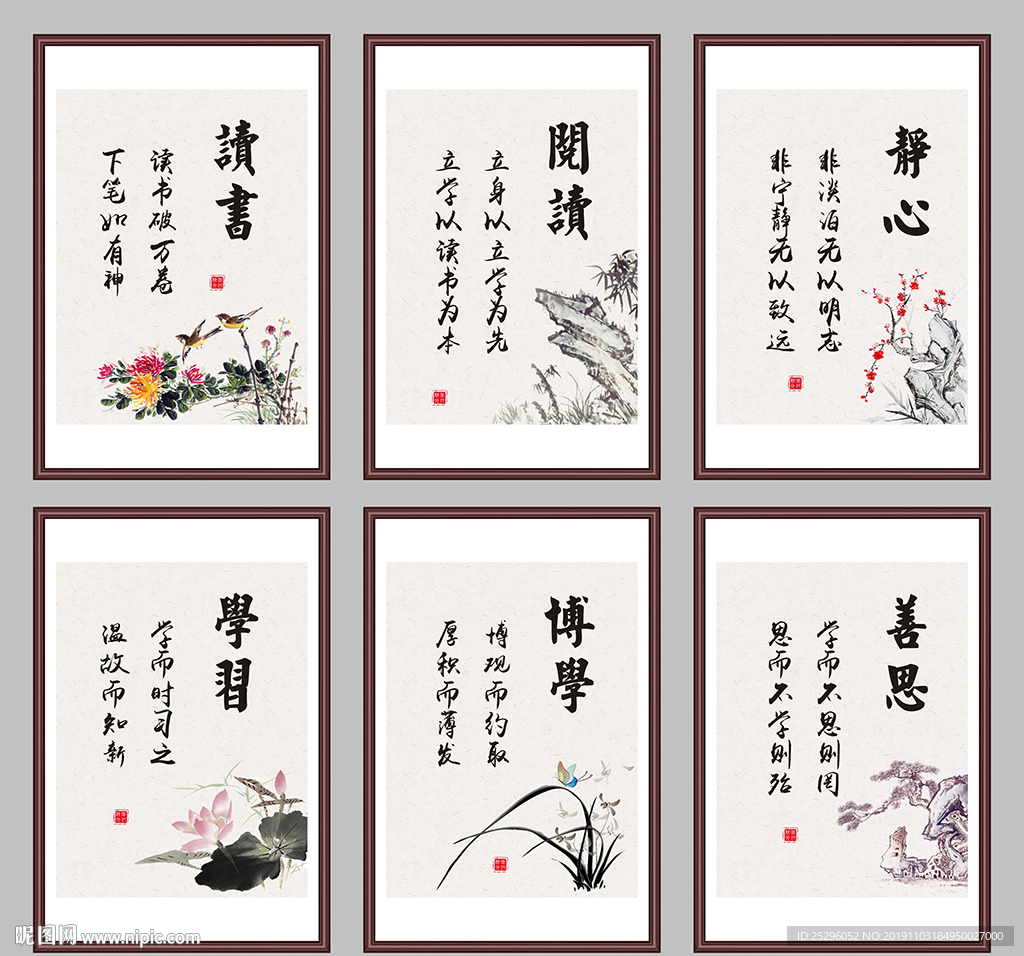 讀書
读书破万卷
下笔如有神
閱讀
立身以立学为先
立学以读书为本
静心
非淡泊无以明志
非宁静无以致远
學習
学而时习之
温故而知新
博學
博现而约取
厚积而薄发
善思
学而不思则罔
思而不学则殆
昵图网 www.nipic.com
ID:25296052 NO:20191103184950027000